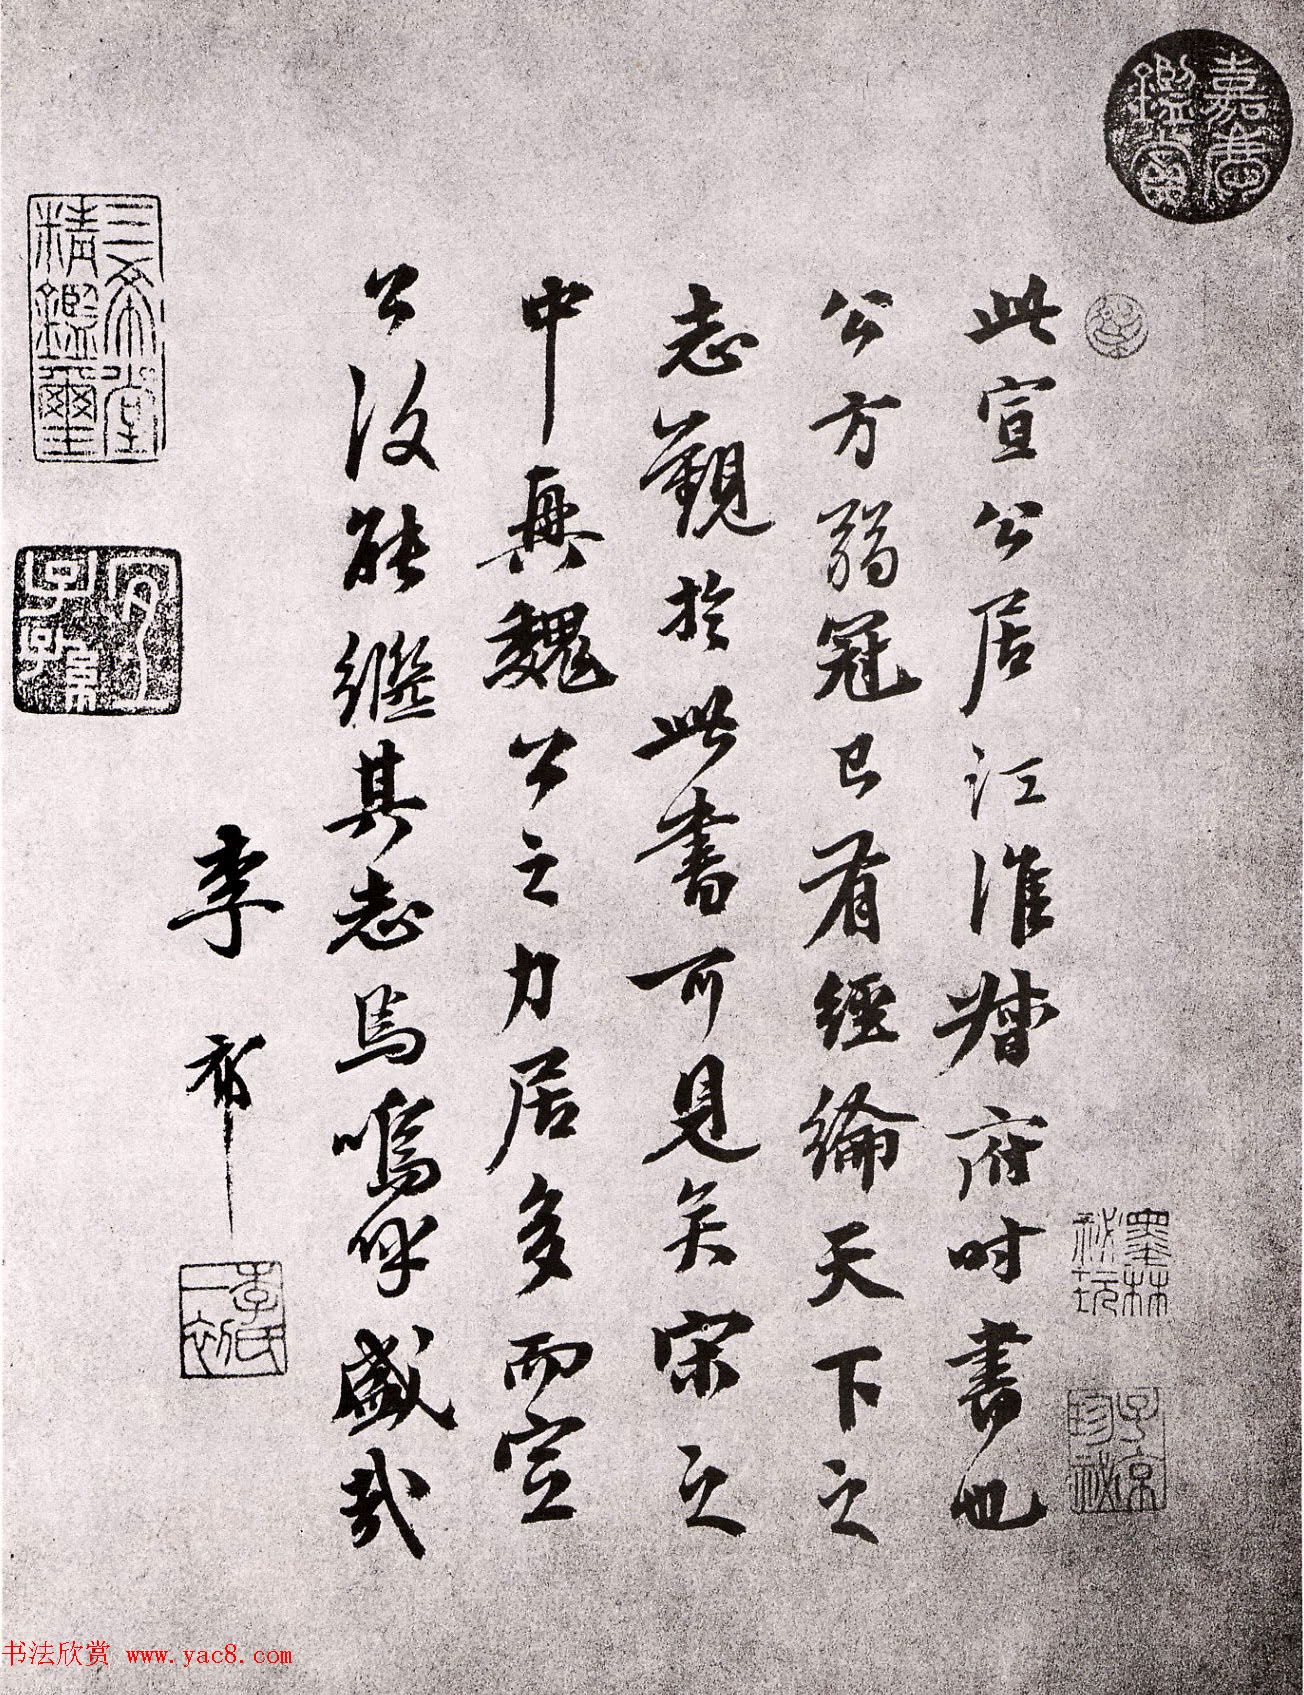 嘉慶鑑賞
此宣公居江淮督府时書也
公方弱冠已有經綸天下之
志觀於此書可見矣宋之
中興魏公之力居多而宣
公復能繼其志焉嗚呼盛哉
李祁
李氏一初
墨林祕玩
子京珍祕
三希堂精鑑璽
宜子孫
书法欣赏 www.yac8.com